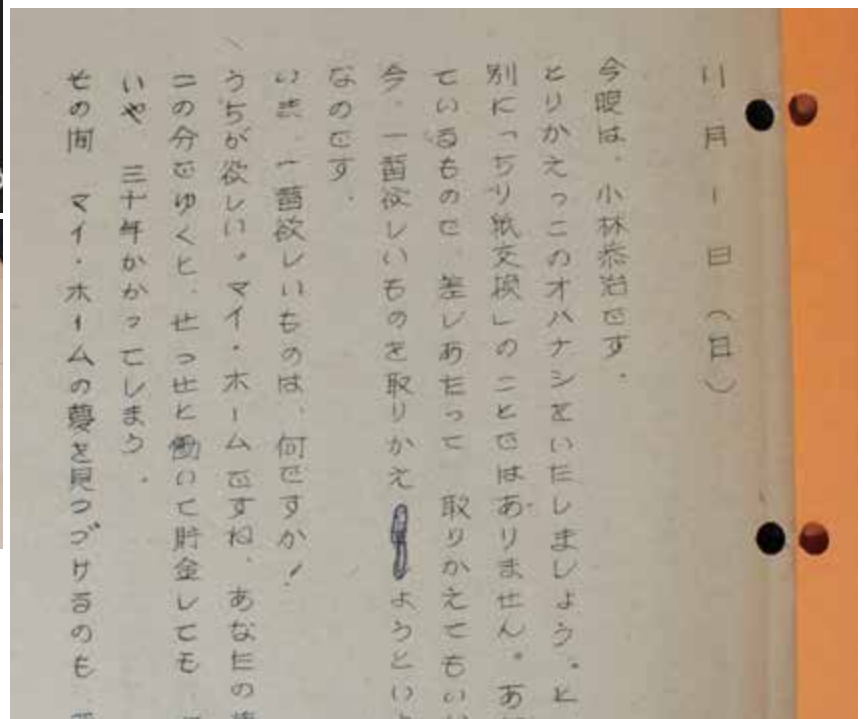 11月1日（日）
今晩は．小林恭治です．
とりかえっこのオハナシをいたしましょう。と
別に「ちり紙交換」のことではありません。あ
ているもので、差しあたって 取りかえてもいい
今、一番欲しいものを取りかえようという
なのです．
い ま、一番欲しいものは、何ですか！
うちが欲しい。マイ・ホームですね、あなたの
この分でゆくと、せっせと働いて貯金しても
いや 三十年かかってしまう．
その間 マイ・ホームの夢を見つづけるのも